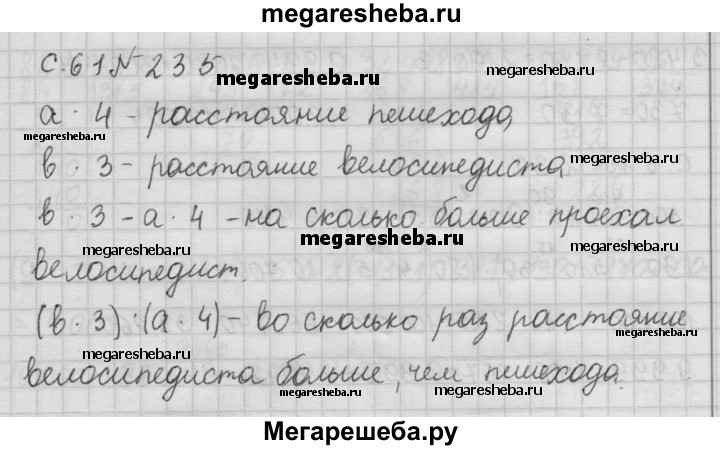 megaresheba.ru
с.61 № 235
megaresheba.ru
а · 4 - расстояние пешехода,
megaresheba.ru
megaresheba.ru
в · 3 - расстояние велосипедиста
megaresheba.ru
в · 3 - а · 4 - на сколько больше проехал
megaresheba.ru
megaresheba.ru
megaresheba.ru
велосипедист.
(в · 3) : (а · 4) - во сколько раз расстояние
megaresheba.ru
megaresheba.ru
велосипедиста больше, чем пешехода.
megaresheba.ru
megaresheba.ru
Мегарешеба.ру